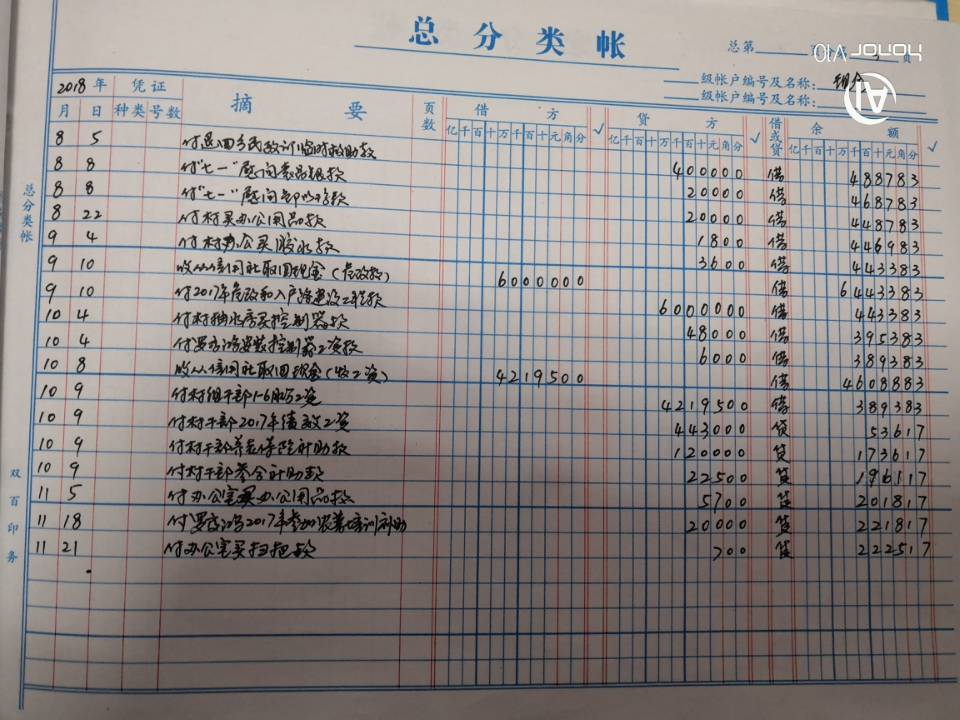 总分类帐
总第 页
HONOR V10
AI
级帐户编号及名称: 现金
级帐户编号及名称:
2018 年 凭证 摘要 页数 借方 √ 贷方 √ 借或贷 余额 √
月 日 种类 号数 亿千百十万千百十元角分 亿千百十万千百十元角分 亿千百十万千百十元角分
8 5 付 临时救助款 400000 借 488783
8 8 付"七一"慰问 款 20000 借 468783
8 8 付"七一"慰问 款 20000 借 448783
8 22 付村买办公用品款 1800 借 446983
9 4 付村办公买胶水款 3600 借 443383
9 10 收从信用社取回现金(危改款) 6000000 借 6443383
9 10 付2017年危改和入户路建设工程款 6000000 借 443383
10 4 付村抽水房买控制器款 48000 借 395383
10 4 付罗 安装控制器工资款 6000 借 389383
10 8 收从信用社取回现金(收工资) 4219500 借 4608883
10 9 付村组干部1-6月 工资 4219500 借 389383
10 9 付村干部2017年绩效工资 443000 贷 53617
10 9 付村干部养老保险补助款 120000 贷 173617
10 9 付村干部 补助款 22500 贷 196117
11 5 付办公室买办公用品款 5700 贷 201817
11 18 付罗 2017年参加 培训补助 20000 贷 221817
11 21 付办公室买扫把款 700 贷 222517
总分类帐
双百印务